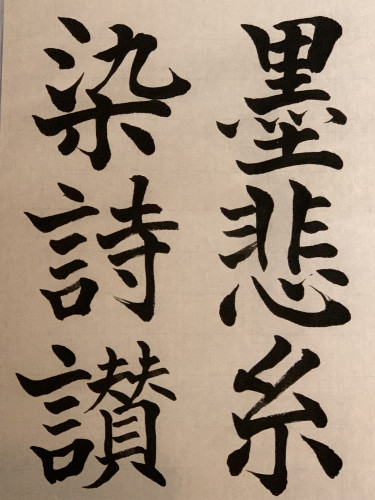 墨悲糸
染詩讃